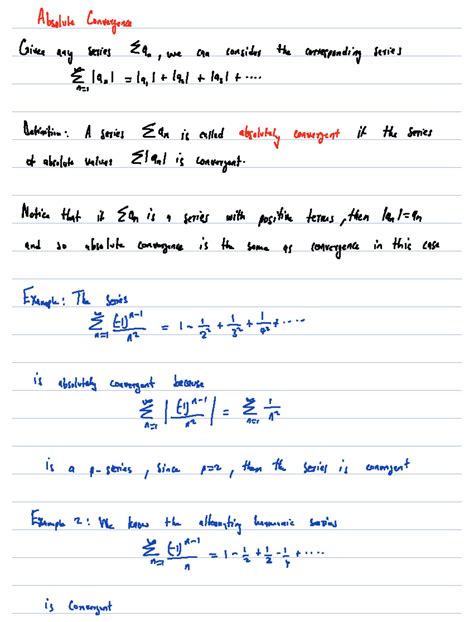 Absolute Convergence
Given any series Σaₙ, we can consider the corresponding series
∞Σn=1 |aₙ| = |a₁| + |a₂| + |a₃| + ....
Definition: A series Σaₙ is called absolutely convergent if the series
of absolute values Σ|aₙ| is convergent.
Notice that if Σaₙ is a series with positive terms, then |aₙ|=aₙ
and so absolute convergence is the same as convergence in this case
Example: The series
∞Σn=1 (-1)ⁿ⁻¹/n² = 1 - 1/2² + 1/3² + 1/4² + ....
is absolutely convergent because
∞Σn=1 |(-1)ⁿ⁻¹/n²| = ∞Σn=1 1/n²
is a p-series, since p=2, then the series is convergent
Example 2: We know the alternating harmonic series
∞Σn=1 (-1)ⁿ⁻¹/n = 1 - 1/2 + 1/3 - 1/4 + ....
is convergent